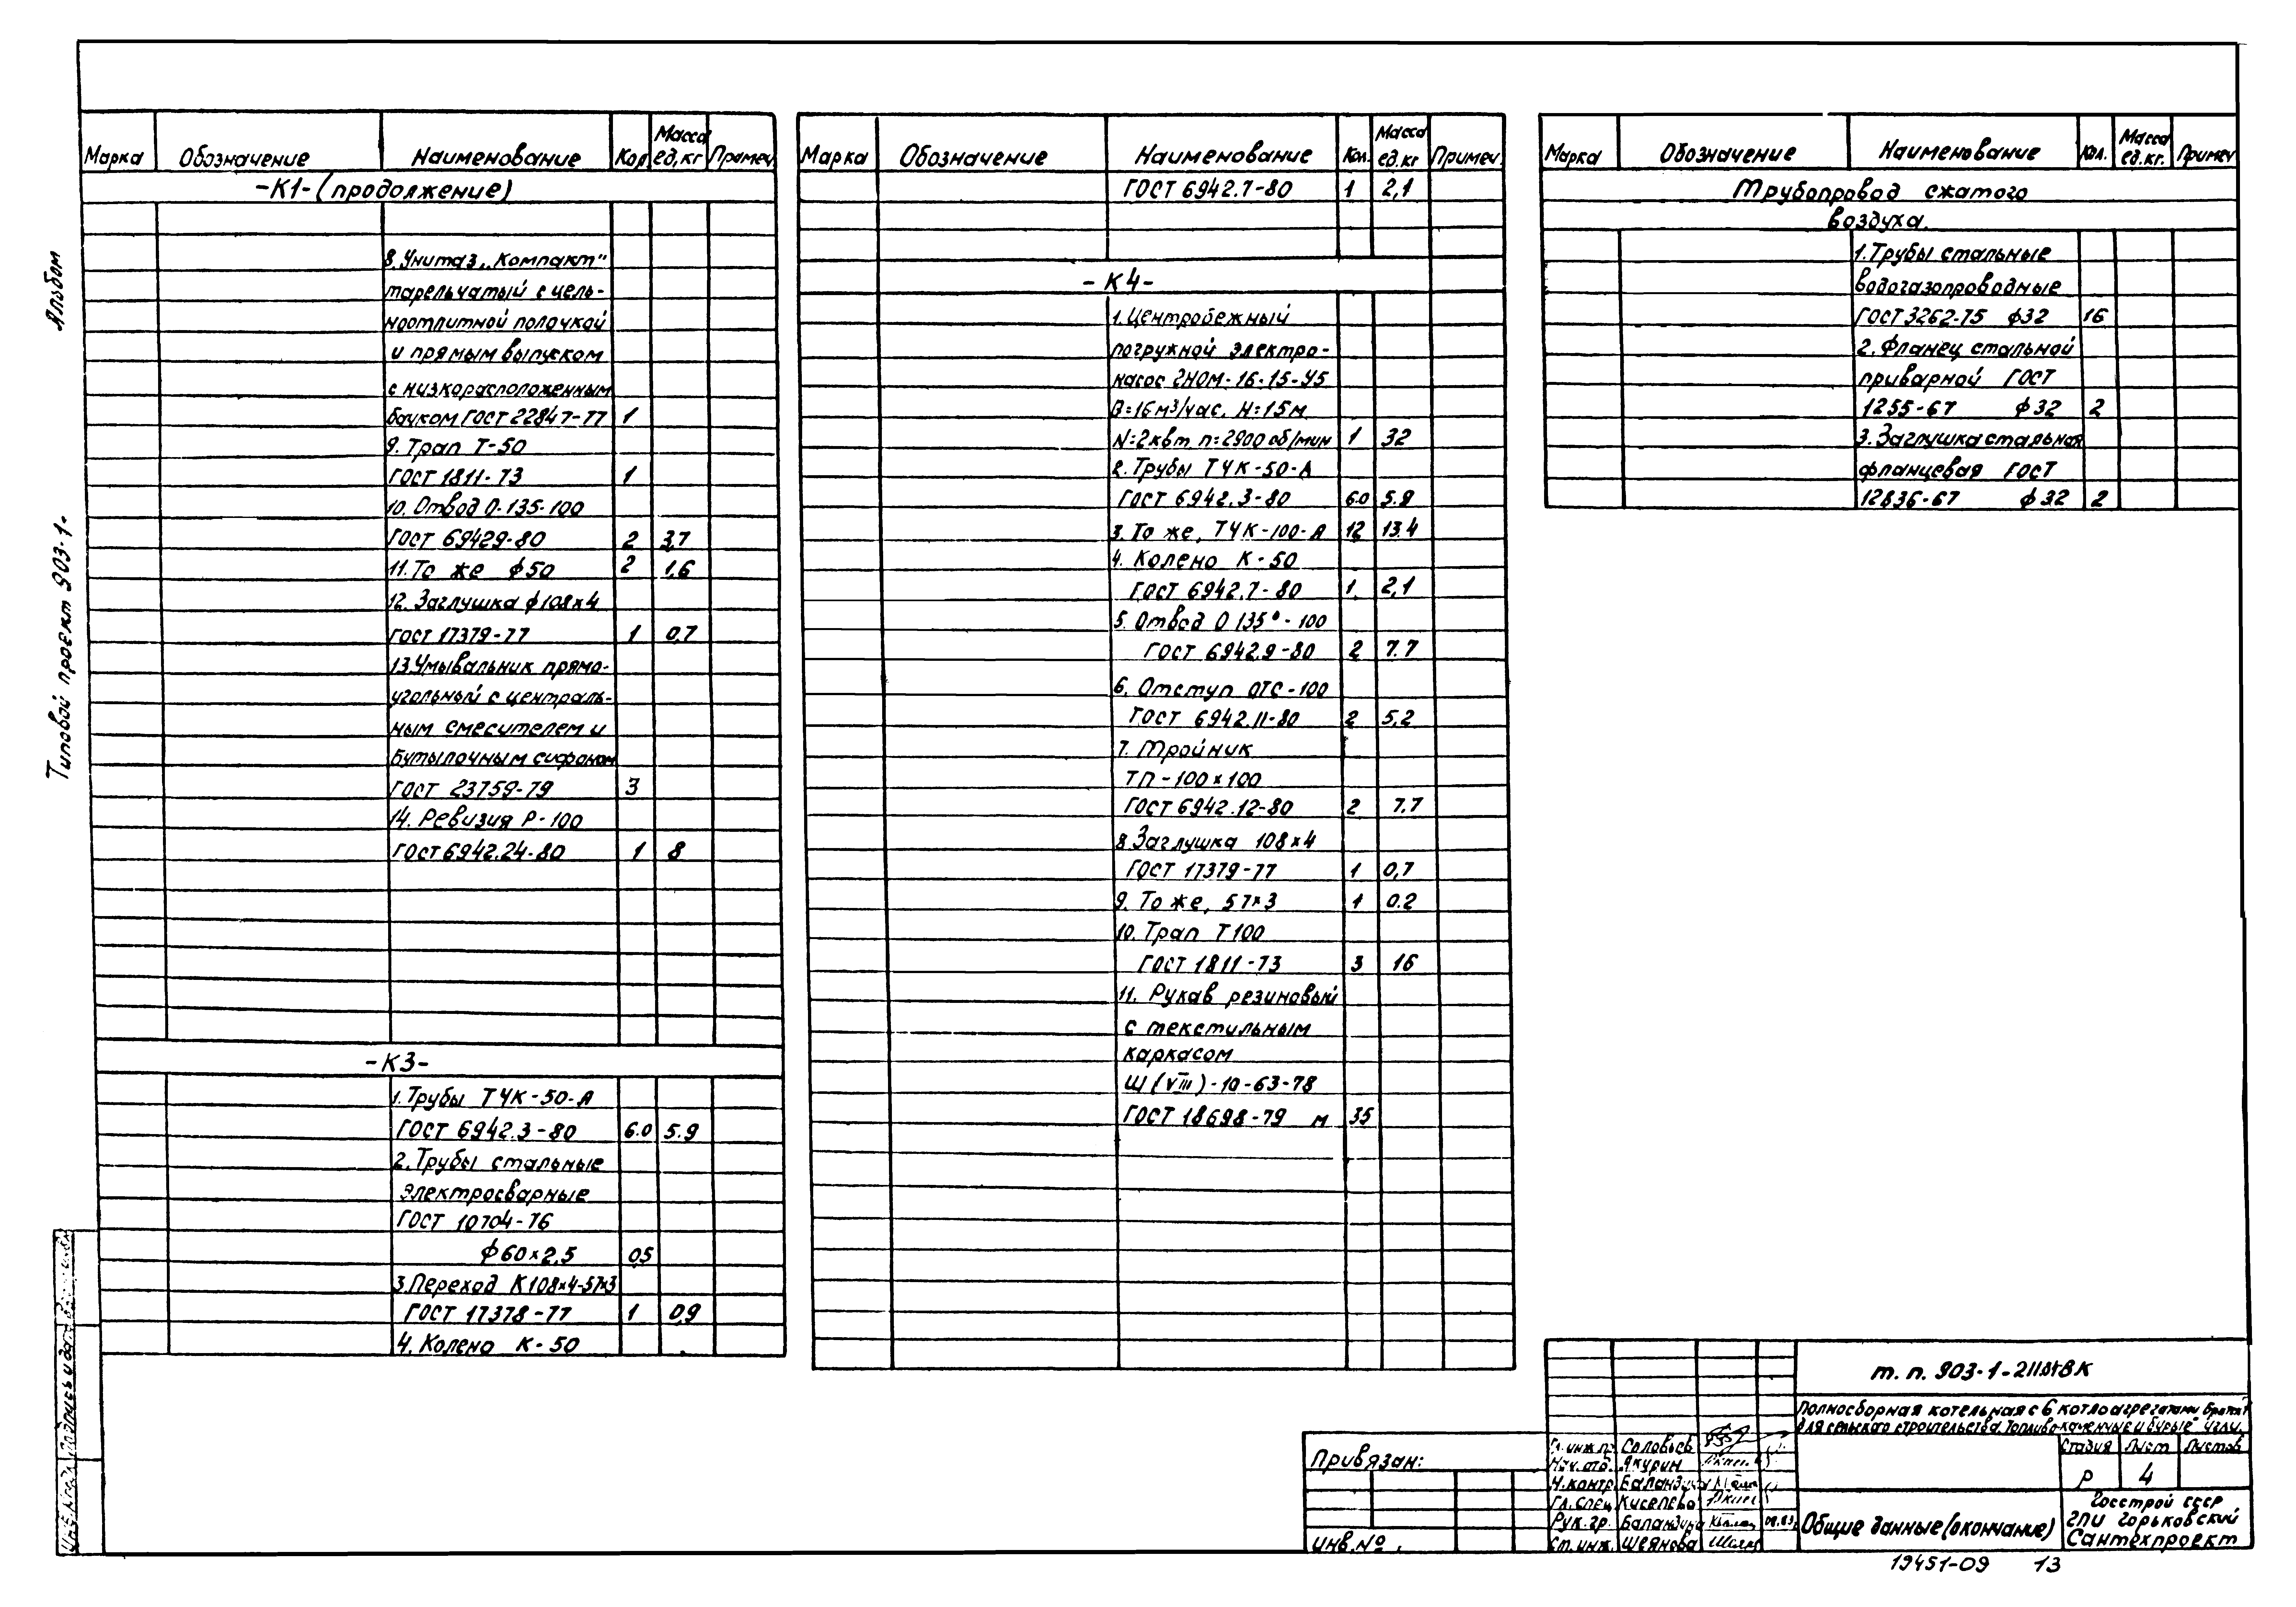 Альбом
Типовой проект 903-1-
Марка Обозначение Наименование Кол. Масса ед, кг Примеч.
-К1- (продолжение)
8. Унитаз „Компакт"
тарельчатый с цель-
ноотлитной полочкой
и прямым выпуском
с низкорасположенным
бачком ГОСТ 22847-77 1
9. Трап Т-50
ГОСТ 1811-73 1
10. Отвод О-135-100
ГОСТ 6942.9-80 2 3,7
11. То же ф50 2 1,6
12. Заглушка ф108×4
ГОСТ 17379-77 1 0,7
13. Умывальник прямо-
угольный с централь-
ным смесителем и
бутылочным сифоном
ГОСТ 23759-79 3
14. Ревизия Р-100
ГОСТ 6942.24-80 1 8
-К3-
1. Трубы ТЧК-50-А
ГОСТ 6942.3-80 6.0 5.9
2. Трубы стальные
электросварные
ГОСТ 10704-76
ф60×2,5 0,5
3. Переход К108×4-57×3
ГОСТ 17378-77 1 0,9
4. Колено К-50
Марка Обозначение Наименование Кол. Масса ед. кг Примеч.
ГОСТ 6942.7-80 1 2,1
-К4-
1. Центробежный
погружной электро-
насос ГНОМ-16-15-У5
В=16м³/час, Н=15м
N=2квт п=2900 об/мин 1 32
2. Трубы ТЧК-50-А
ГОСТ 6942.3-80 6.0 5.9
3. То же, ТЧК-100-А 12 13.4
4. Колено К-50
ГОСТ 6942.7-80 1 2,1
5. Отвод О 135°-100
ГОСТ 6942.9-80 2 7.7
6. Отступ ОТС-100
ГОСТ 6942.11-80 2 5.2
7. Тройник
ТП-100×100
ГОСТ 6942.12-80 2 7.7
8. Заглушка 108×4
ГОСТ 17379-77 1 0,7
9. То же, 57×3 1 0.2
10. Трап Т100
ГОСТ 1811-73 3 16
11. Рукав резиновый
с текстильным
каркасом
Ш(VIII)-10-63-78
ГОСТ 18698-79 м 35
Марка Обозначение Наименование Кол. Масса ед. кг. Примеч
Трубопровод сжатого
воздуха.
1. Трубы стальные
водогазопроводные
ГОСТ 3262-75 ф32 16
2. Фланец стальной
приварной ГОСТ
1255-67 ф32 2
3. Заглушка стальная
фланцевая ГОСТ
12836-67 ф32 2
Привязан:
Инв.№
Гл. инж. пр. Соловьев
Нач. отд. Якурин
Н. контр. Баландина
Гл. спец. Киселева
Рук. гр. Баландина
Ст. инж. Шеянова
т. п. 903-1-211.84 ВК
Полносборная котельная с 6 котлоагрегатами
для сельского строительства. Топливо-каменные и бурые угли.
Стадия Лист Листов
Р 4
Общие данные (окончание)
Госстрой СССР
ГПИ Горьковский
Сантехпроект
19451-09 13